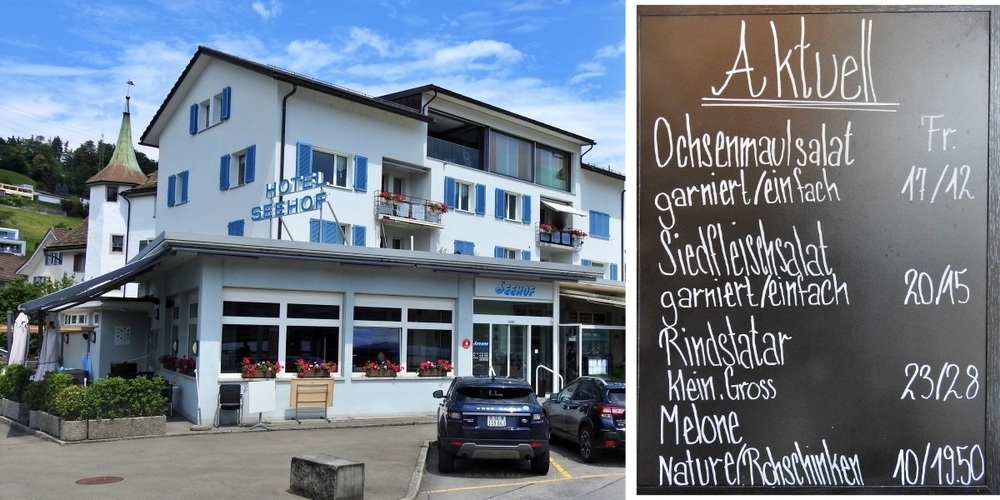 HOTEL
SEEHOF
SEEHOF
Aktuell
Fr.
Ochsenmaulsalat
garniert/einfach 17/12
Siedfleischsalat
garniert/einfach 20/15
Rindstatar
Klein. Gross 23/28
Melone
Nature/Rohschinken 10/19.50